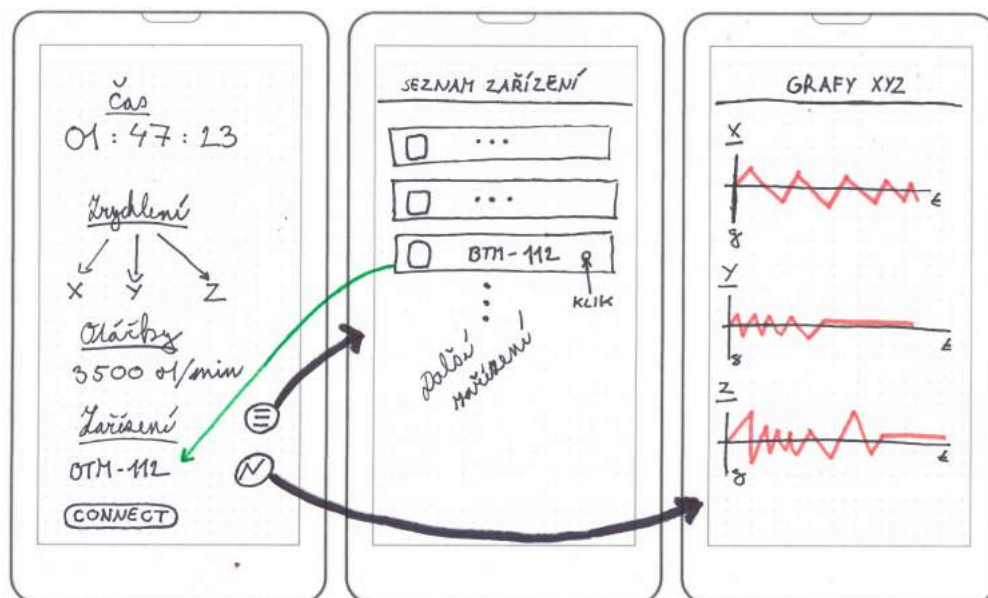 Čas
01:47:23
Zrychlení
X Y Z
Otáčky
3500 ot/min
Zařízení
OTM-112
CONNECT
SEZNAM ZAŘÍZENÍ
...
...
BTM-112
KLIK
Další
zařízení
GRAFY XYZ
X
t
g
Y
t
g
Z
t
g